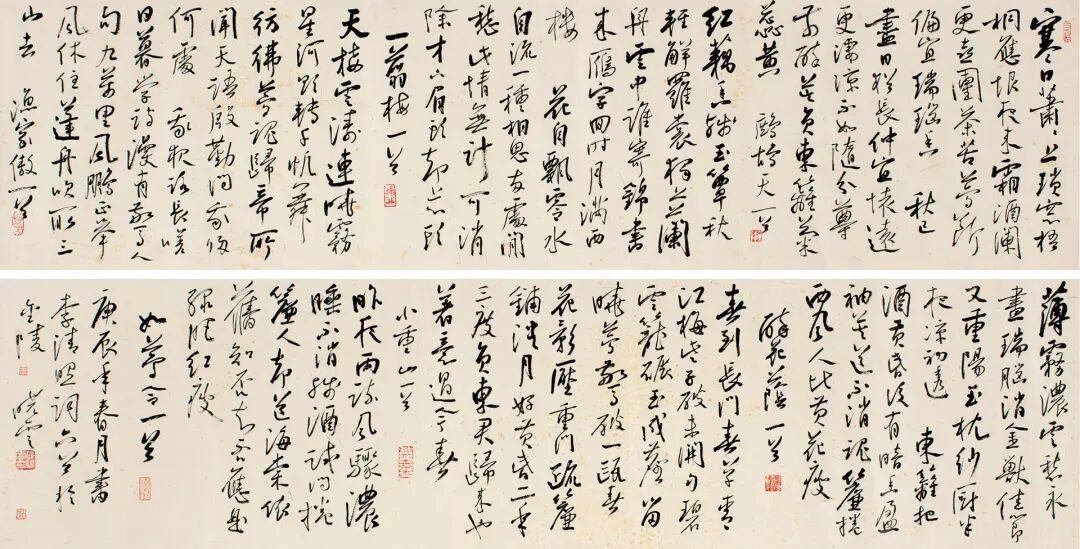 寒日蕭〻上瑣窗梧
桐應恨夜来霜酒闌
更喜團茶苦夢斷
偏宜瑞腦香 秋已
盡日猶長仲宣懷遠
更淒凉不如隨分尊
前醉莫負東籬菊
蕊黄 鷓鴣天一首
紅藕香殘玉簟秋
輕解羅裳獨上蘭
舟雲中誰寄錦書
来雁字回時月滿西
樓 花自飄零水
自流一種相思兩處閒
愁此情無計可消
除才下眉頭却上心頭
一剪梅一首
天接雲濤連曉霧
星河欲轉千帆舞
彷彿夢魂歸帝所
聞天語殷勤問我歸
何處 我報路長嗟
日暮學詩漫有驚人
句九萬里風鵬正舉
風休住蓬舟吹取三
山去 漁家傲一首
薄霧濃雲愁永
晝瑞腦消金獸佳節
又重陽玉枕紗厨半
夜凉初透 東籬把
酒黄昏後有暗香盈
袖莫道不消魂簾捲
西風人比黄花瘦
醉花陰一首
春到長門春草青
江梅些子破未開勻碧
雲籠碾玉成塵留
曉夢驚破一甌春
花影壓重門疏簾
鋪淡月好黄昏二年
三度負東君歸来也
著意過今春
小重山一首
昨夜雨疏風驟濃
睡不消殘酒試問捲
簾人却道海棠依
舊知否知否應是
綠肥紅瘦
如夢令一首
庚辰年春月書
李清照詞六首於
金陵 曉雲